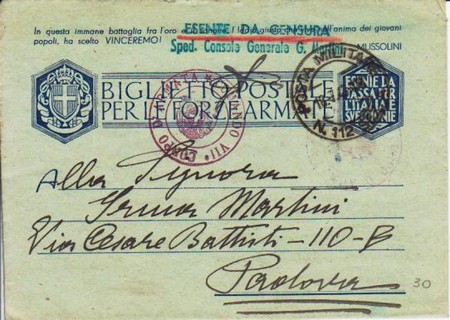 In questa immane battaglia fra l'oro e il sangue l'anima dei giovani
popoli, ha scelto VINCEREMO! MUSSOLINI
ESENTE DA CENSURA
Sped. Console Generale G.
BIGLIETTO POSTALE
PER LE FORZE ARMATE
ESENTE LA
TASSA PER
L'ITALIA E
SVE COLONIE
POSTA MILITARE
N. 112
COMANDO VII
CORPO D'
Alla Signora
Irma Martini
Via Cesare Battisti-110-B
Padova
30